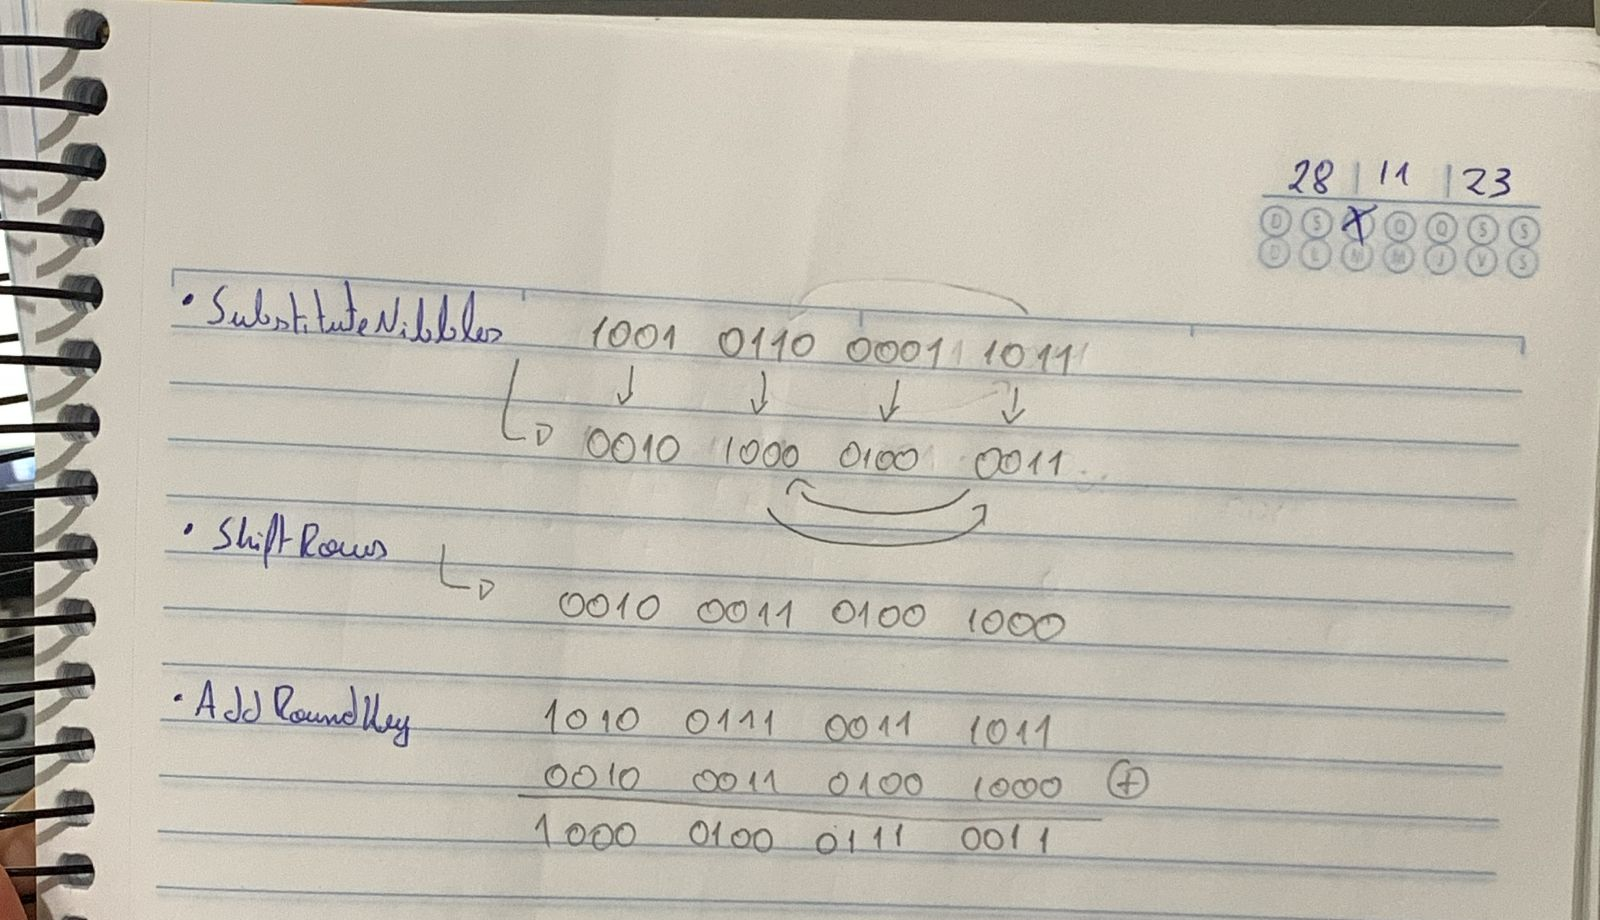 28 | 11 | 23
D S X Q Q S S
D L M M J V S
• SubstituteNibbles 1001 0110 0001 1011
0010 1000 0100 0011
• ShiftRows
0010 0011 0100 1000
• AddRoundKey 1010 0111 0011 1011
0010 0011 0100 1000 ⊕
1000 0100 0111 0011